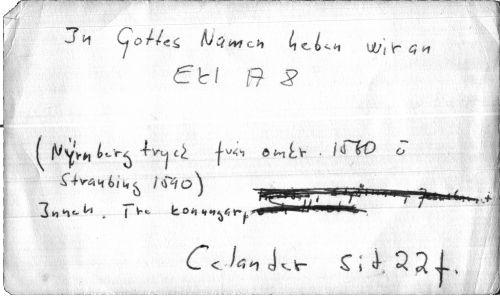 In Gottes Namen heben wir an
Ekl A 8
(Nürnberg tryck från omkr. 1560 o
Straubing 1590)
Inneh. Tre konungar,
Celander sid. 22 f.